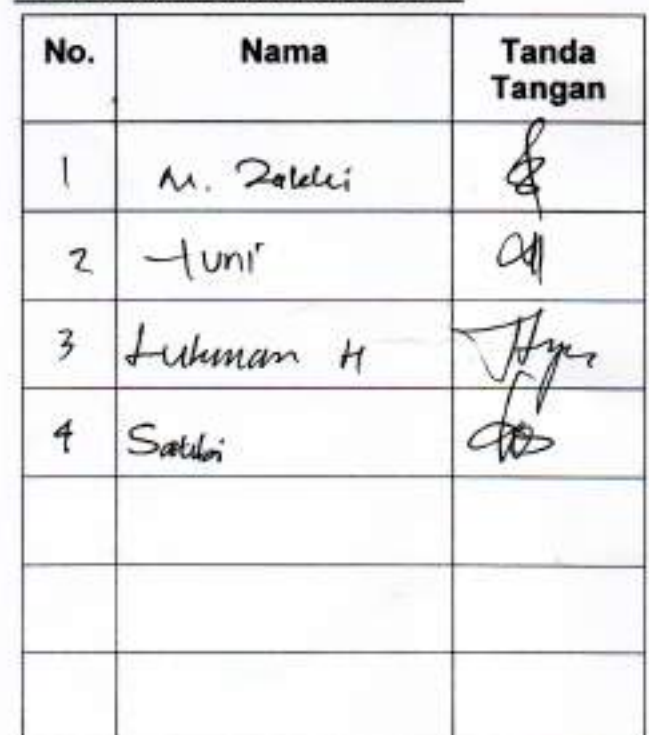 No. Nama Tanda Tangan
1 M. Zakki
2 Yuni
3 Lukman H
4